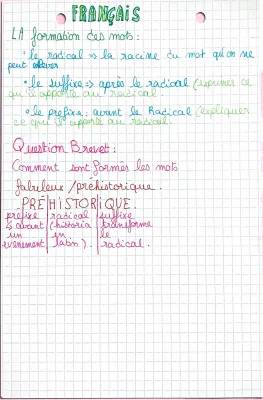 FRANÇAIS
LA formation des mots:
• le radical => la racine du mot qu'on ne
peut enlever
• le suffixe => après le radical (expliquer ce
qu'il apporte au radical.
• le préfixe: avant le Radical (expliquer
ce qu'il apporte au radical.
Question Brevet:
Comment sont formés les mots
fabuleux/préhistorique.
PRÉHISTORIQUE.
préfixe radical suffixe
↳ avant (historia transforme
un en le
évènement latin). radical.